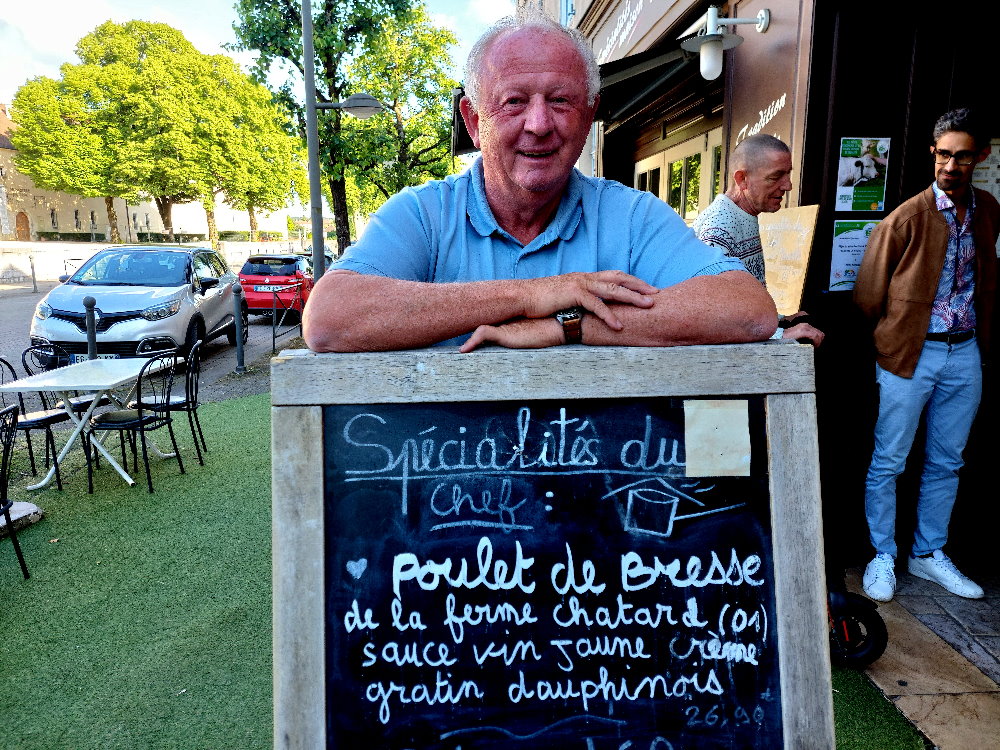 Tradition
Spécialités du
Chef :
Poulet de Bresse
de la ferme chatard (01)
sauce vin jaune crème
gratin dauphinois
26,90